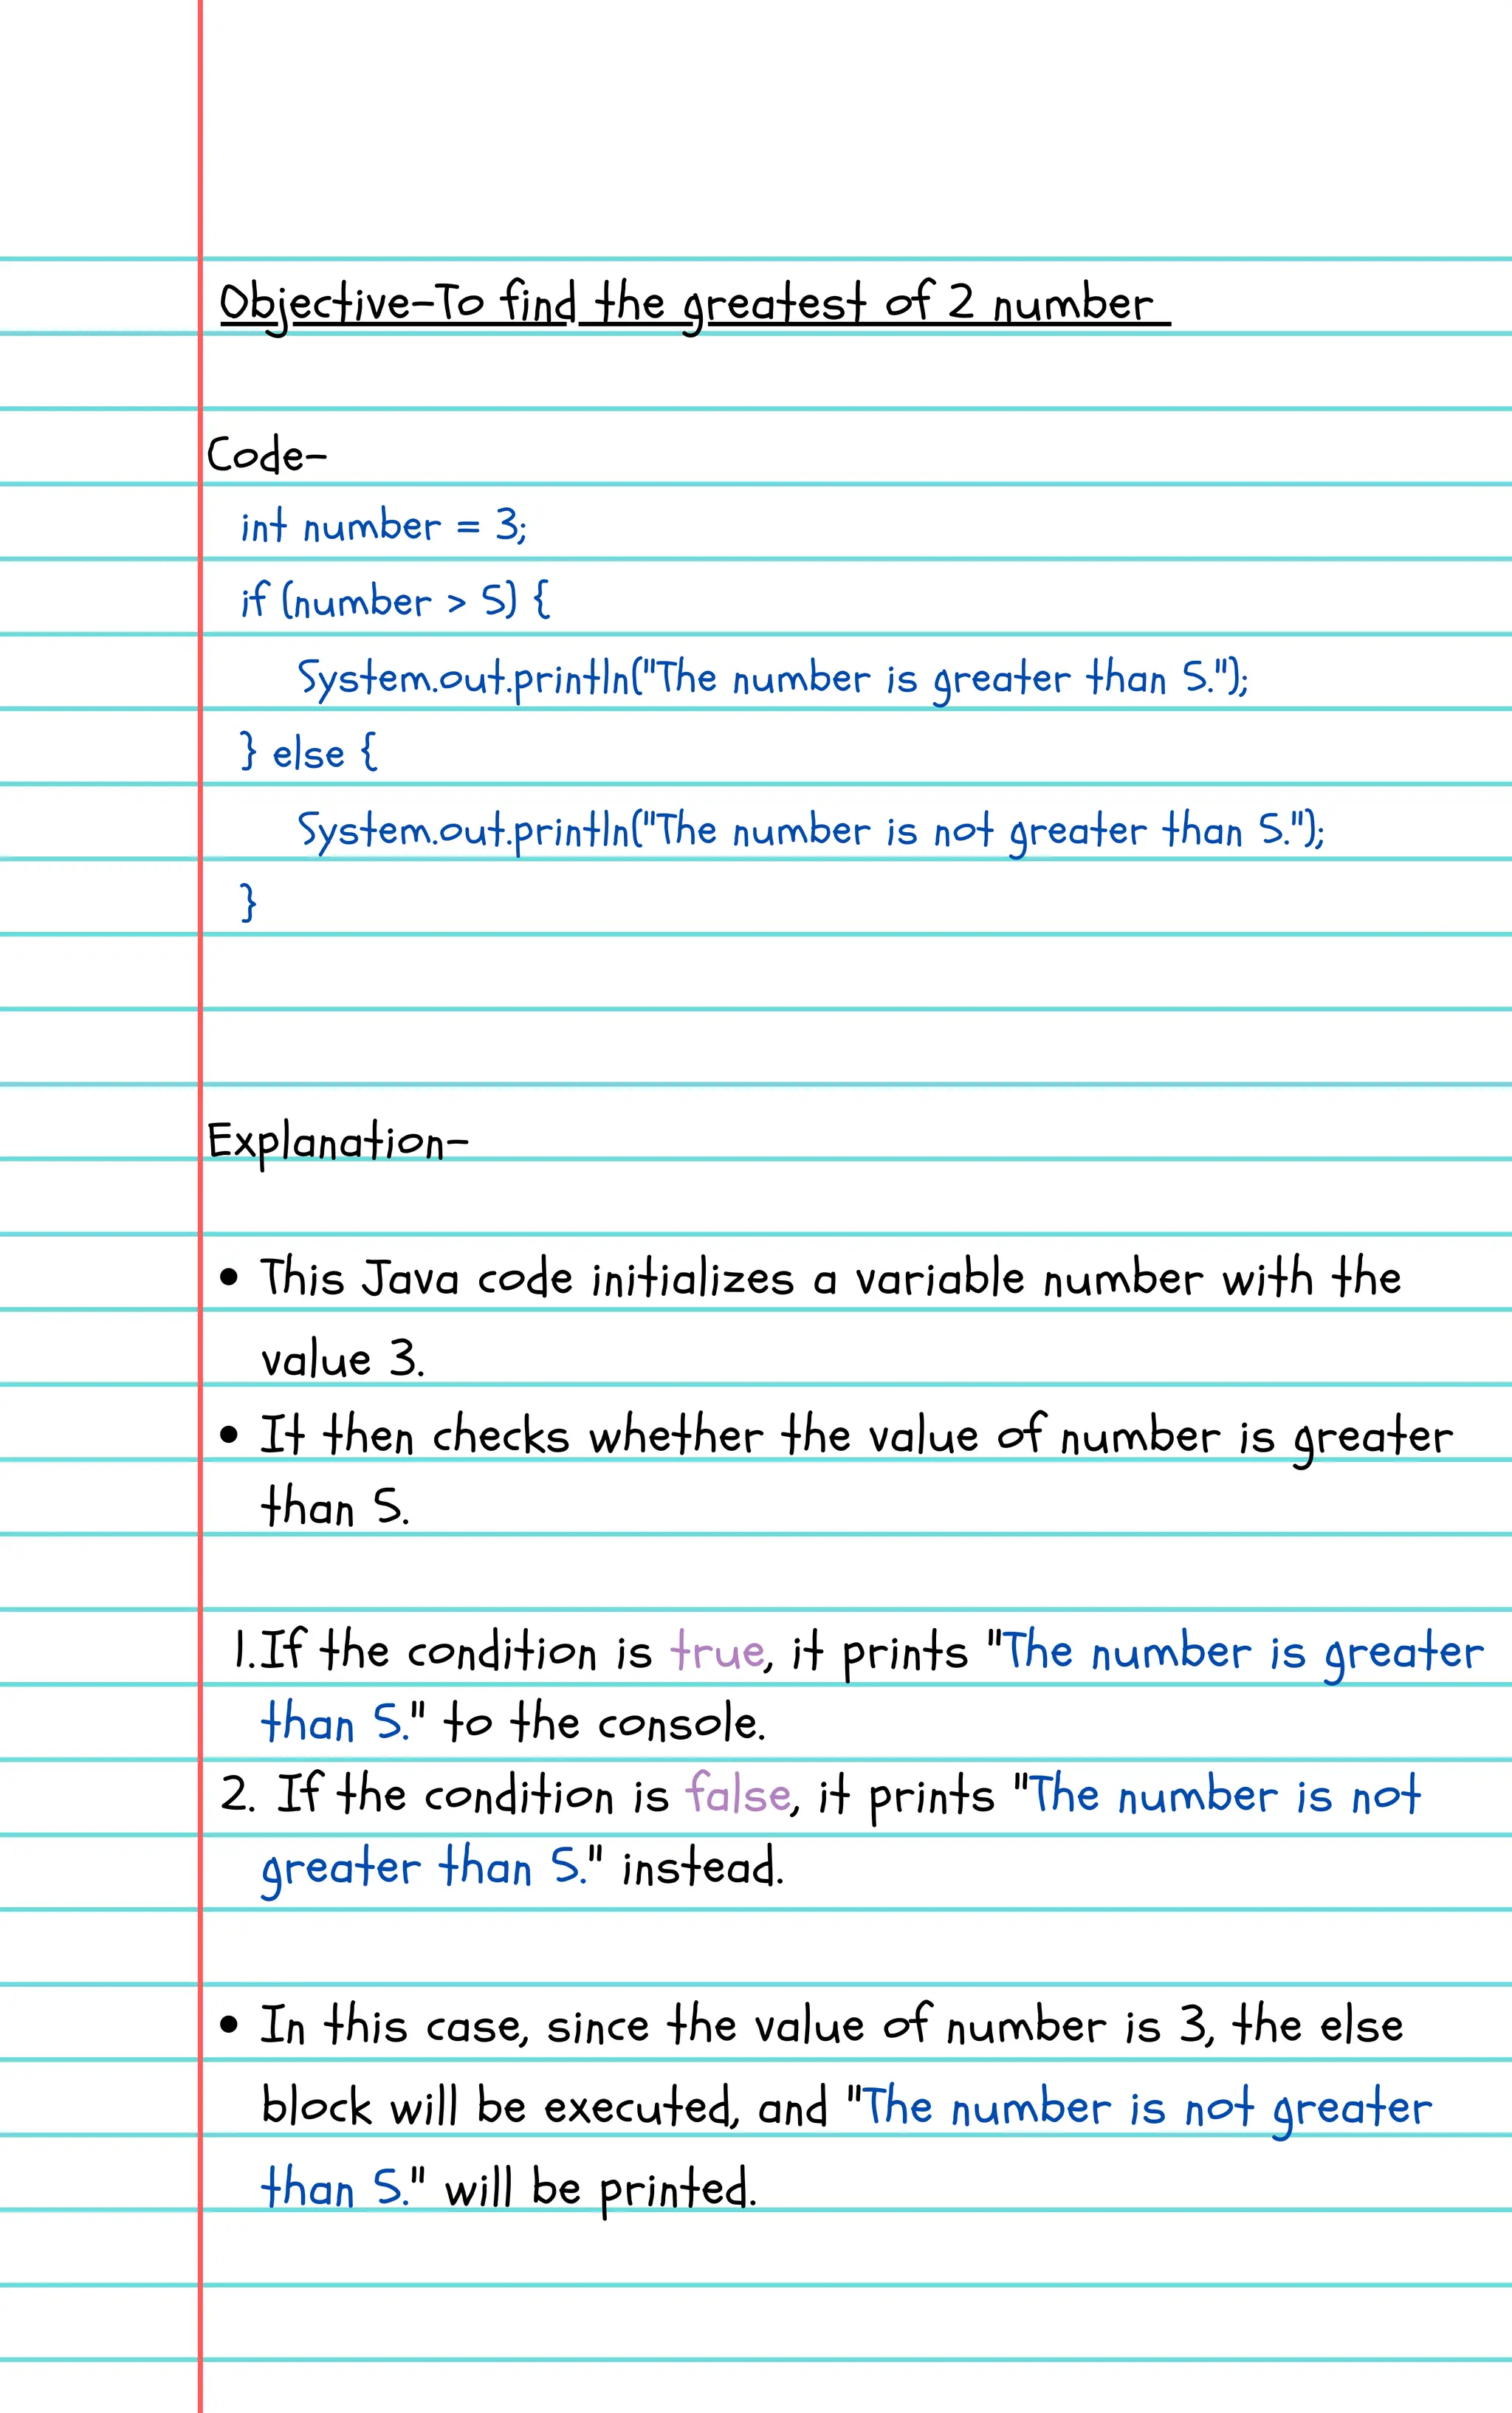 Objective-To find the greatest of 2 number
Code-
int number = 3;
if (number > 5) {
System.out.println("The number is greater than 5.");
} else {
System.out.println("The number is not greater than 5.");
}
Explanation-
• This Java code initializes a variable number with the
value 3.
• It then checks whether the value of number is greater
than 5.
1.If the condition is true, it prints "The number is greater
than 5." to the console.
2. If the condition is false, it prints "The number is not
greater than 5." instead.
• In this case, since the value of number is 3, the else
block will be executed, and "The number is not greater
than 5." will be printed.